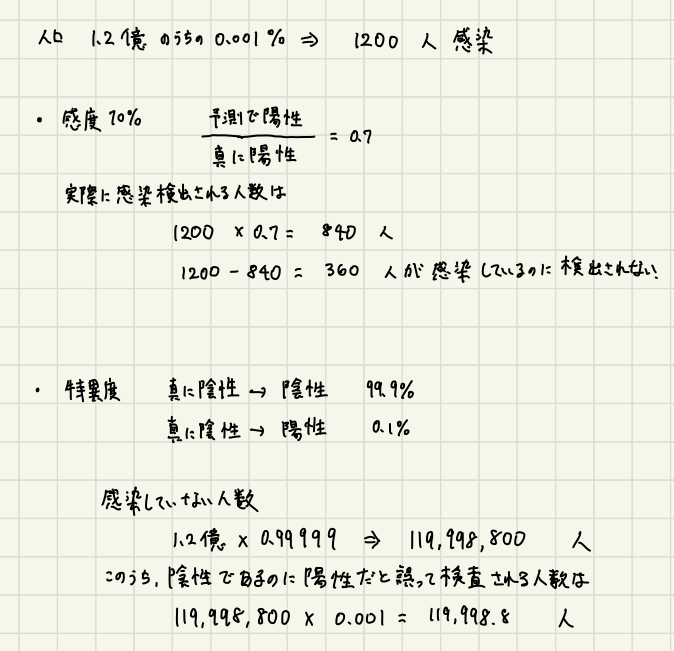 人口 1.2億 のうちの 0.001% ⇒ 1200 人 感染
・ 感度 70% 予測で陽性 / 真に陽性 = 0.7
実際に感染検出される人数は
1200 × 0.7 = 840 人
1200 - 840 = 360 人が感染しているのに検出されない.
・ 特異度 真に陰性 → 陰性 99.9%
真に陰性 → 陽性 0.1%
感染していない人数
1.2億 × 0.99999 ⇒ 119,998,800 人
このうち, 陰性であるのに陽性だと誤って検査される人数は
119,998,800 × 0.001 = 119,998.8 人